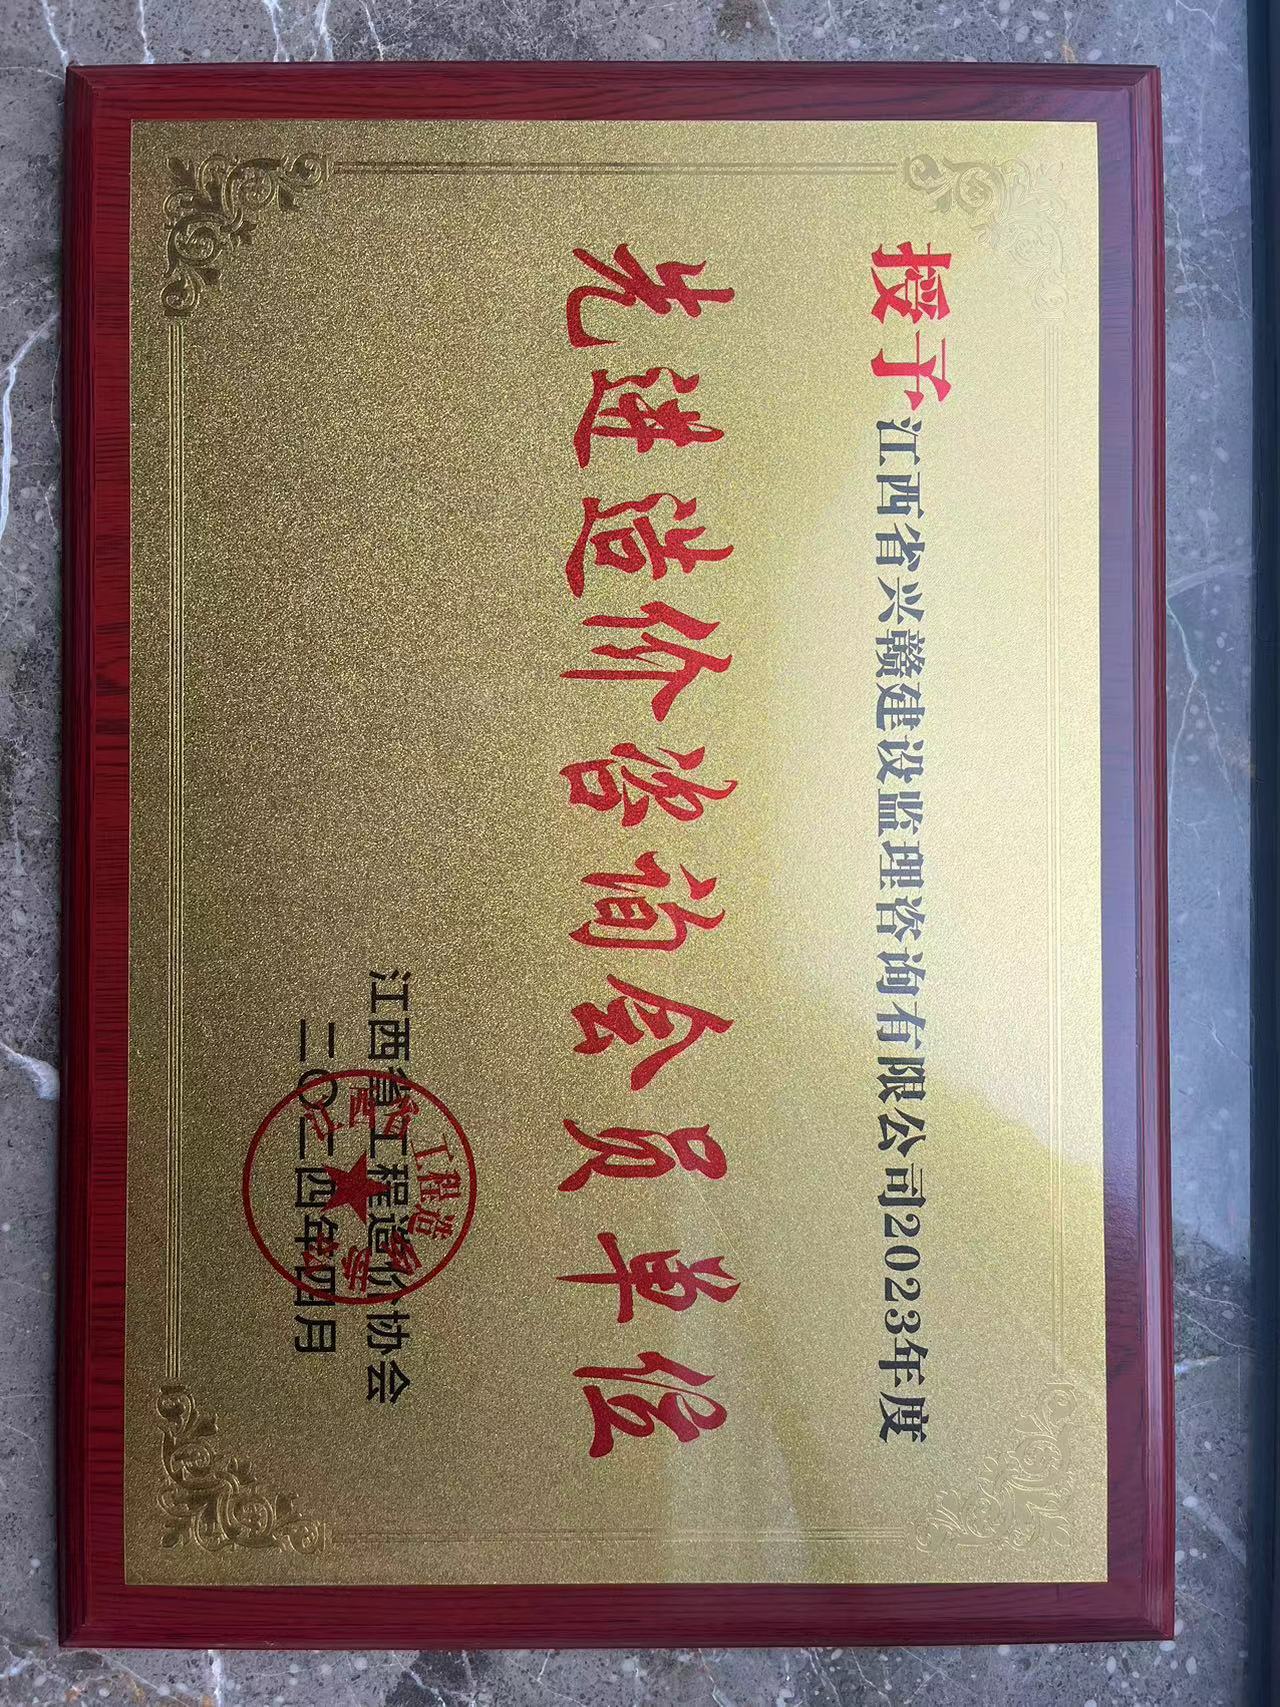 授予江西省兴赣建设监理咨询有限公司2023年度
先进造价咨询会员单位
江西省工程造价协会
二〇二四年四月